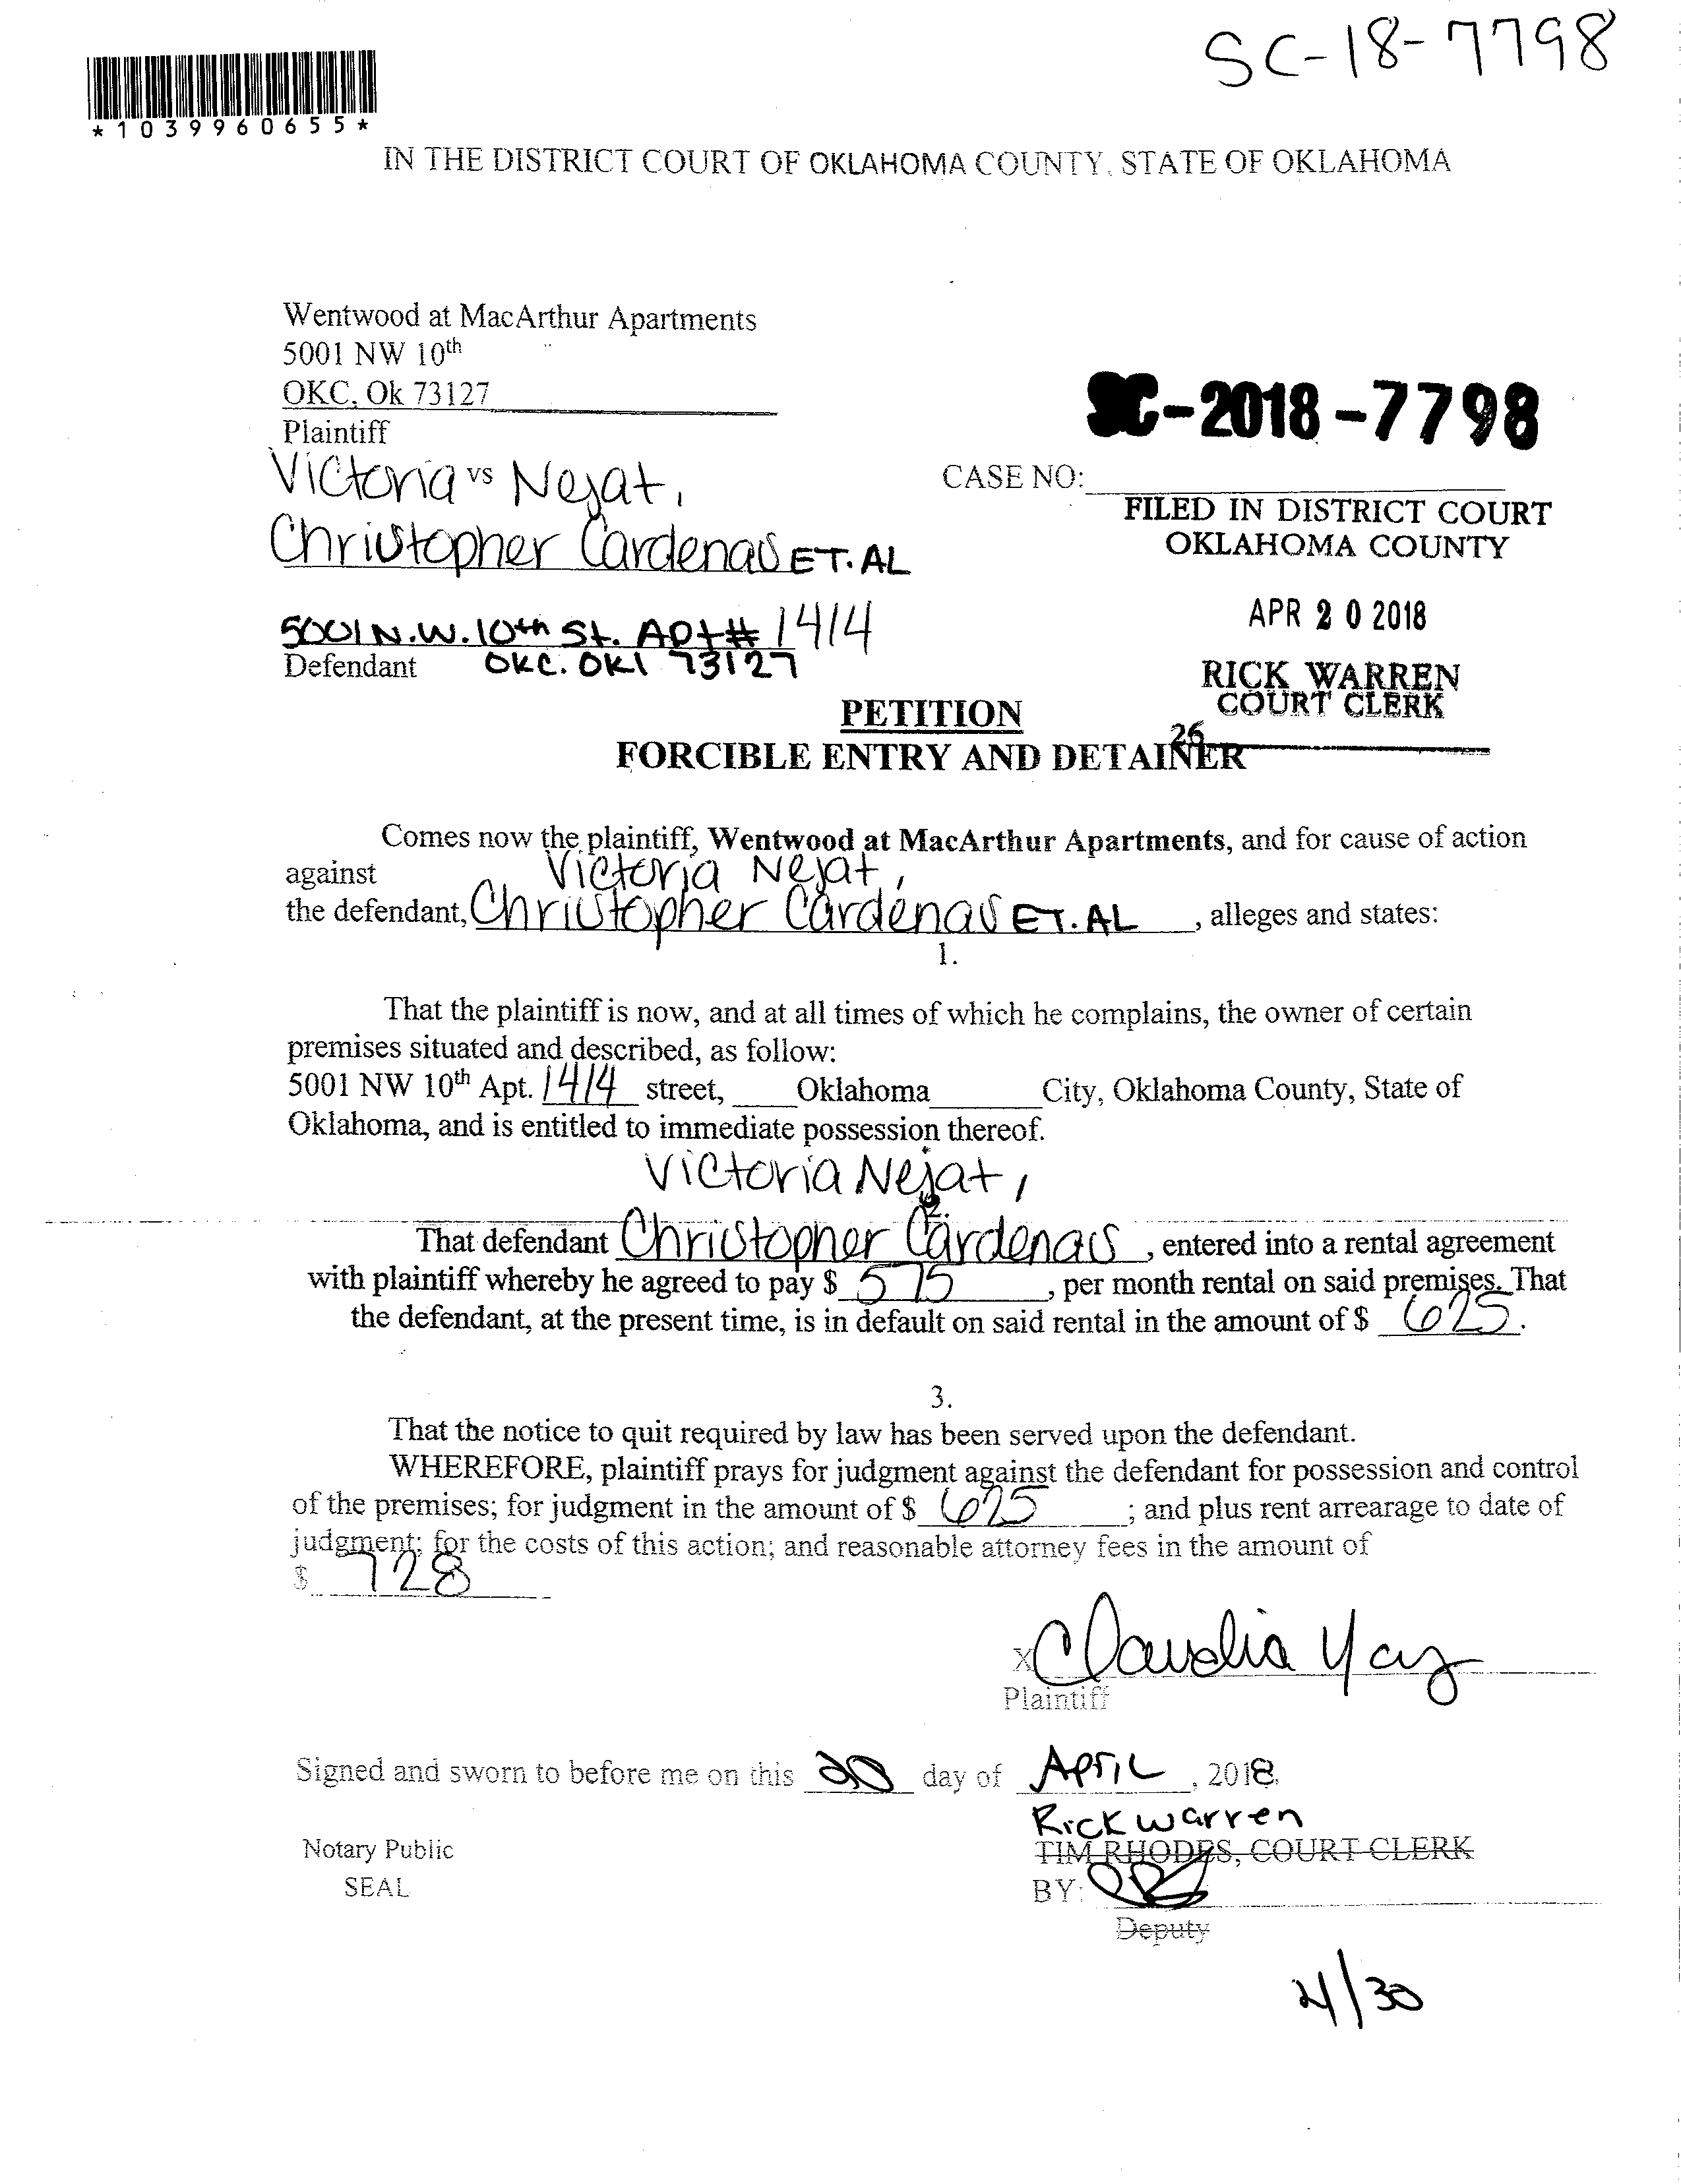 SC-18-7798
*1039960655*
IN THE DISTRICT COURT OF OKLAHOMA COUNTY, STATE OF OKLAHOMA
Wentwood at MacArthur Apartments
5001 NW 10th
OKC, Ok 73127
Plaintiff
SC-2018-7798
Victoria vs Nejat,
CASE NO:
FILED IN DISTRICT COURT
OKLAHOMA COUNTY
Christopher Cardenas ET. AL
APR 20 2018
5001 N.W. 10th St. Apt# 1414
Defendant OKC. OKl 73127
RICK WARREN
COURT CLERK
PETITION
26
FORCIBLE ENTRY AND DETAINER
Comes now the plaintiff, Wentwood at MacArthur Apartments, and for cause of action
against Victoria Nejat,
the defendant, Christopher Cardenas ET. AL , alleges and states:
1.
That the plaintiff is now, and at all times of which he complains, the owner of certain
premises situated and described, as follow:
5001 NW 10th Apt. 1414 street, Oklahoma City, Oklahoma County, State of
Oklahoma, and is entitled to immediate possession thereof.
Victoria Nejat,
2.
That defendant Christopher Cardenas , entered into a rental agreement
with plaintiff whereby he agreed to pay $ 575 , per month rental on said premises. That
the defendant, at the present time, is in default on said rental in the amount of $ 625.
3.
That the notice to quit required by law has been served upon the defendant.
WHEREFORE, plaintiff prays for judgment against the defendant for possession and control
of the premises; for judgment in the amount of $ 625 ; and plus rent arrearage to date of
judgment; for the costs of this action; and reasonable attorney fees in the amount of
$ 728
X Claudia Yaz
Plaintiff
Signed and sworn to before me on this 20 day of April , 2018.
Rick Warren
Notary Public
TIM RHODES, COURT CLERK
SEAL
BY:
Deputy
4/30